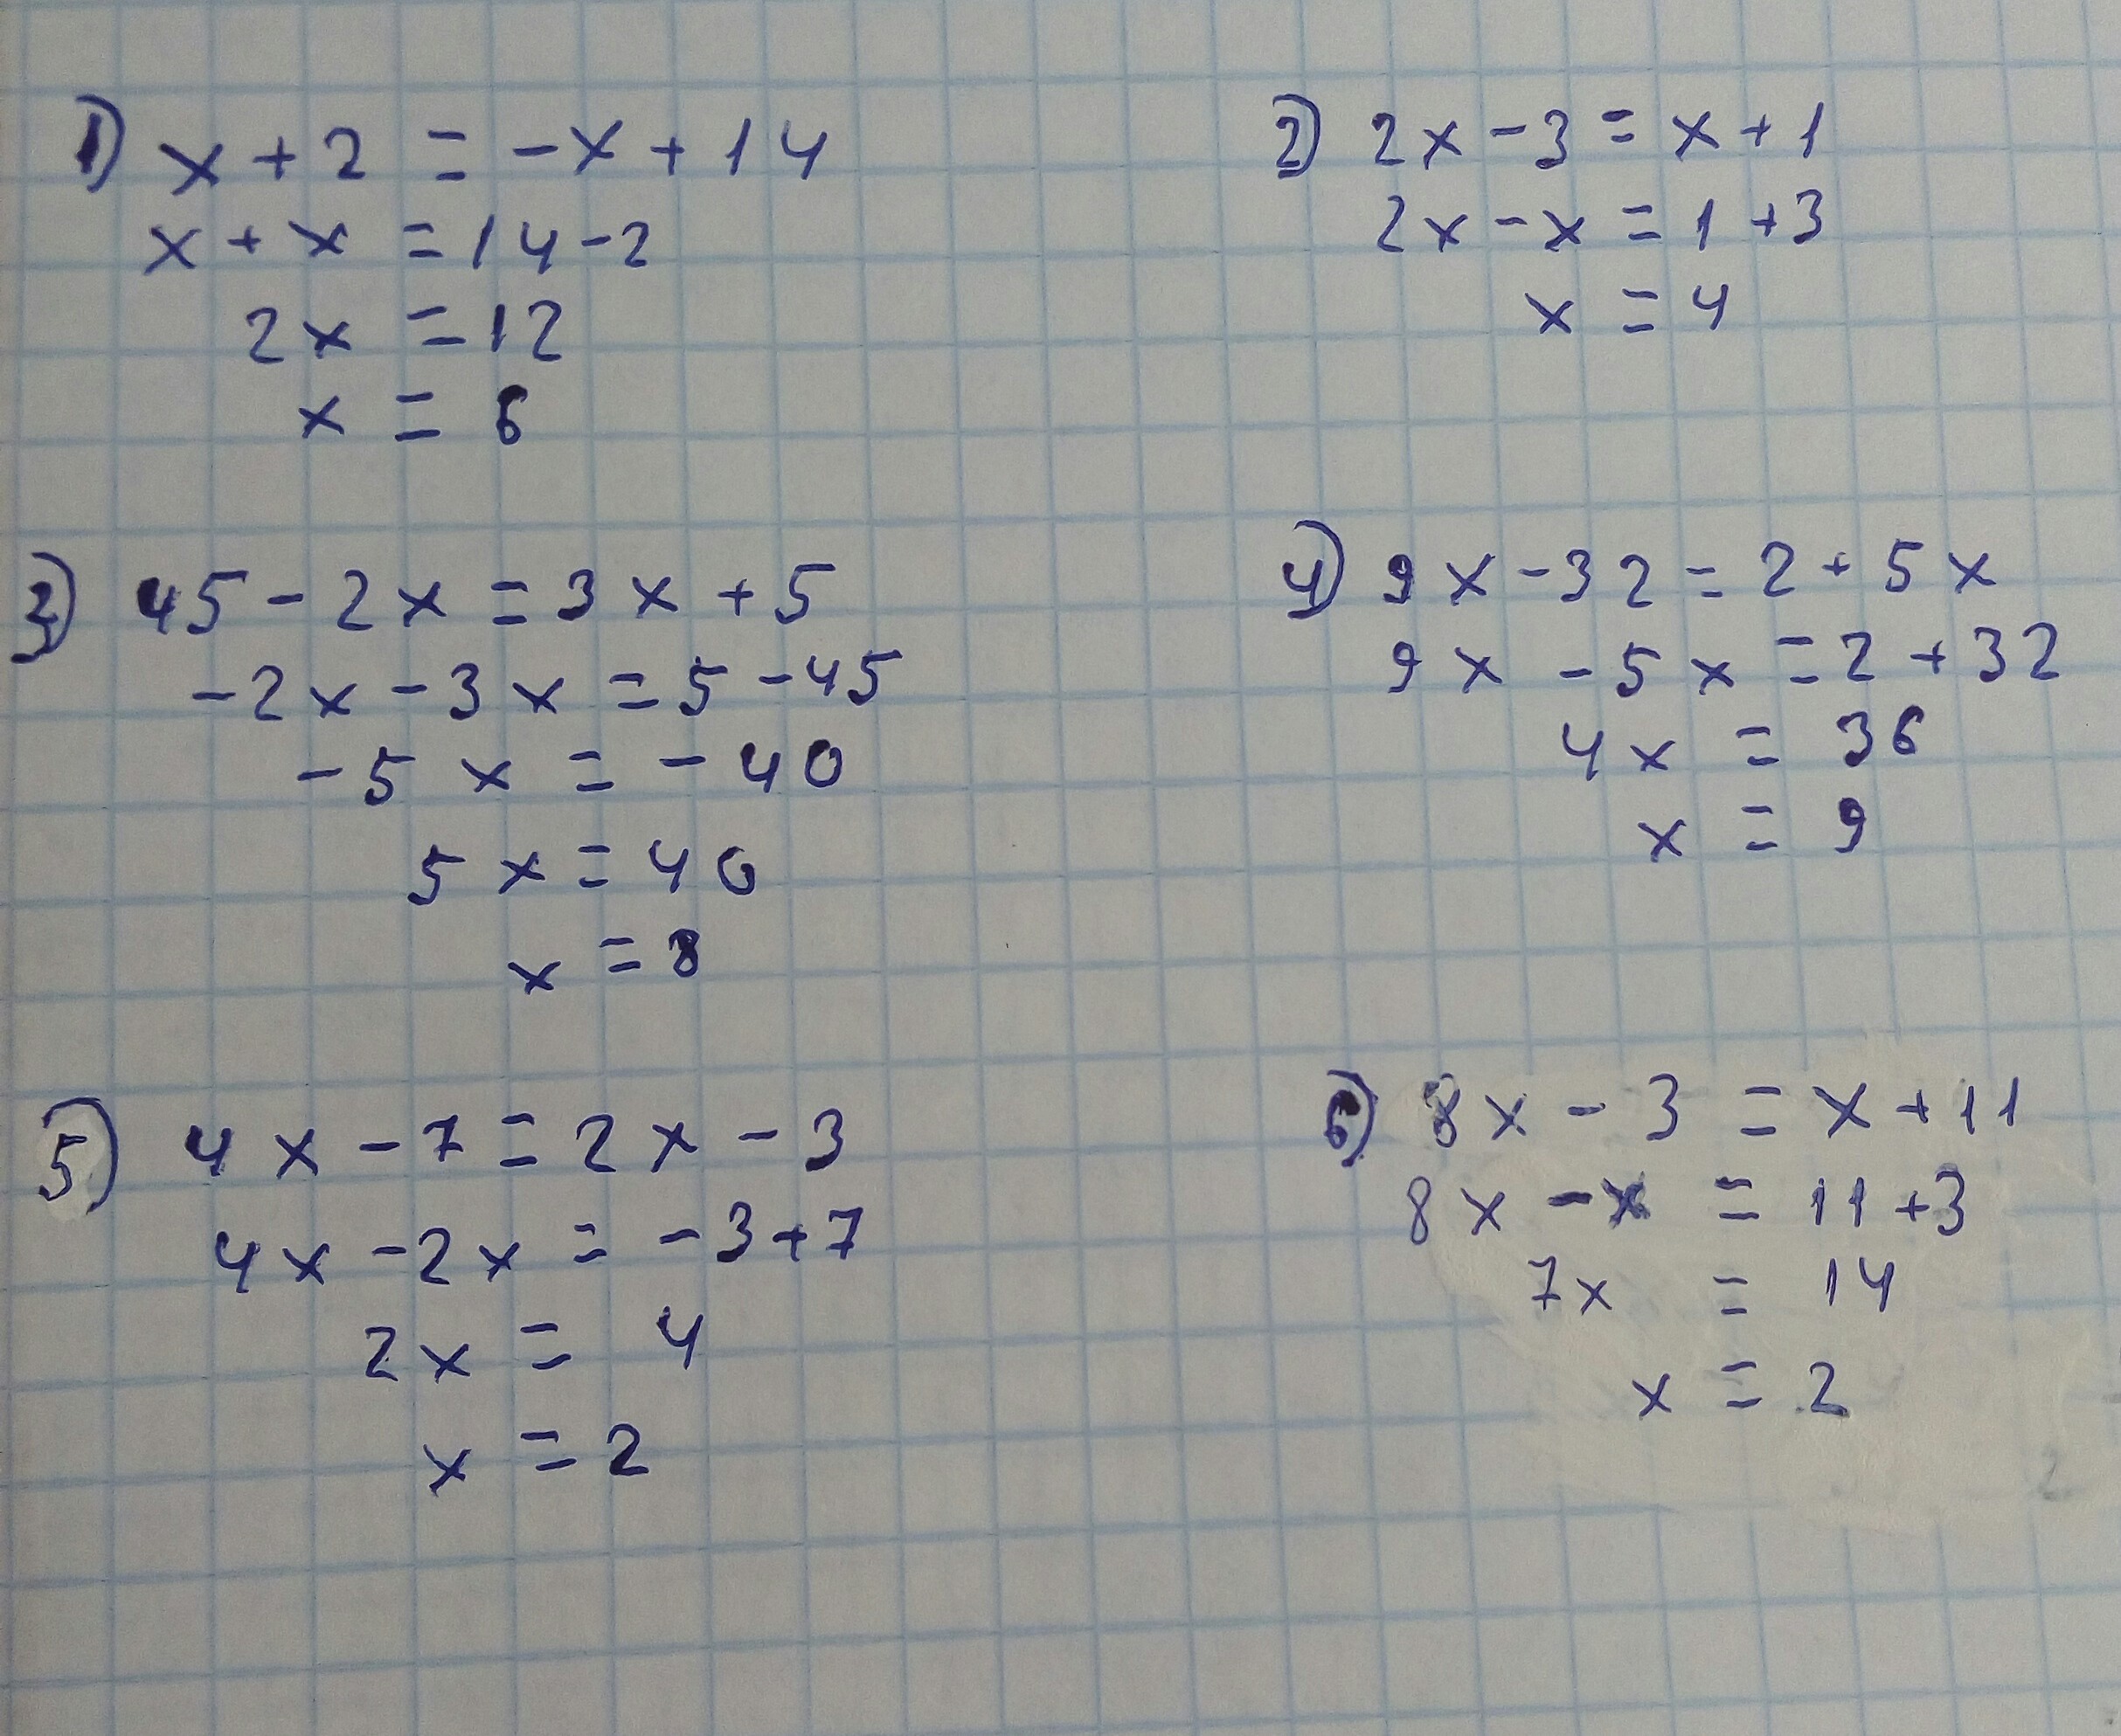 1) x + 2 = -x + 14
x + x = 14 - 2
2x = 12
x = 6
2) 2x - 3 = x + 1
2x - x = 1 + 3
x = 4
3) 45 - 2x = 3x + 5
-2x - 3x = 5 - 45
-5x = -40
5x = 40
x = 8
4) 9x - 32 = 2 + 5x
9x - 5x = 2 + 32
4x = 36
x = 9
5) 4x - 7 = 2x - 3
4x - 2x = -3 + 7
2x = 4
x = 2
6) 8x - 3 = x + 11
8x - x = 11 + 3
7x = 14
x = 2